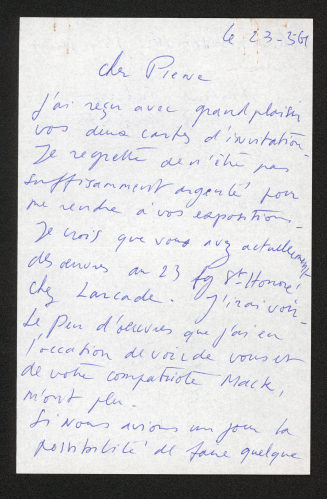 le 23-3-61
cher Piene
J'ai reçu avec grand plaisir
vos deux cartes d'invitation.
Je regrette de n'être pas
suffisamment argenté pour
me rendre à vos expositions.
Je crois que vous avez actuellement
des œuvres au 23 fg St Honoré
chez Larcade. J'irai voir.
Le peu d'œuvres que j'ai eu
l'occasion de voir de vous et
de votre compatriote Mack,
m'ont plu.
Si nous avions un jour la
possibilité de faire quelque